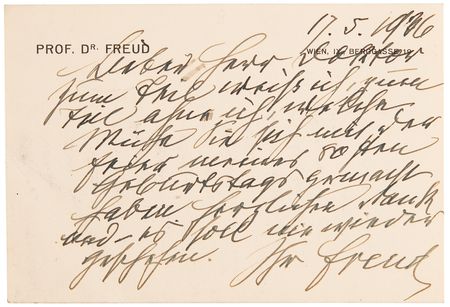 17.5.1936
PROF. DR. FREUD
WIEN, IX., BERGGASSE 19
Lieber Herr Doktor
zum Teil weiß ich, zum
Teil ahne ich, welche
Mühe Sie sich mit der
Feier meines 80sten
Geburtstags gemacht
haben. Herzlichen Dank
und – es soll nie wieder
geschehen. Ihr Freud